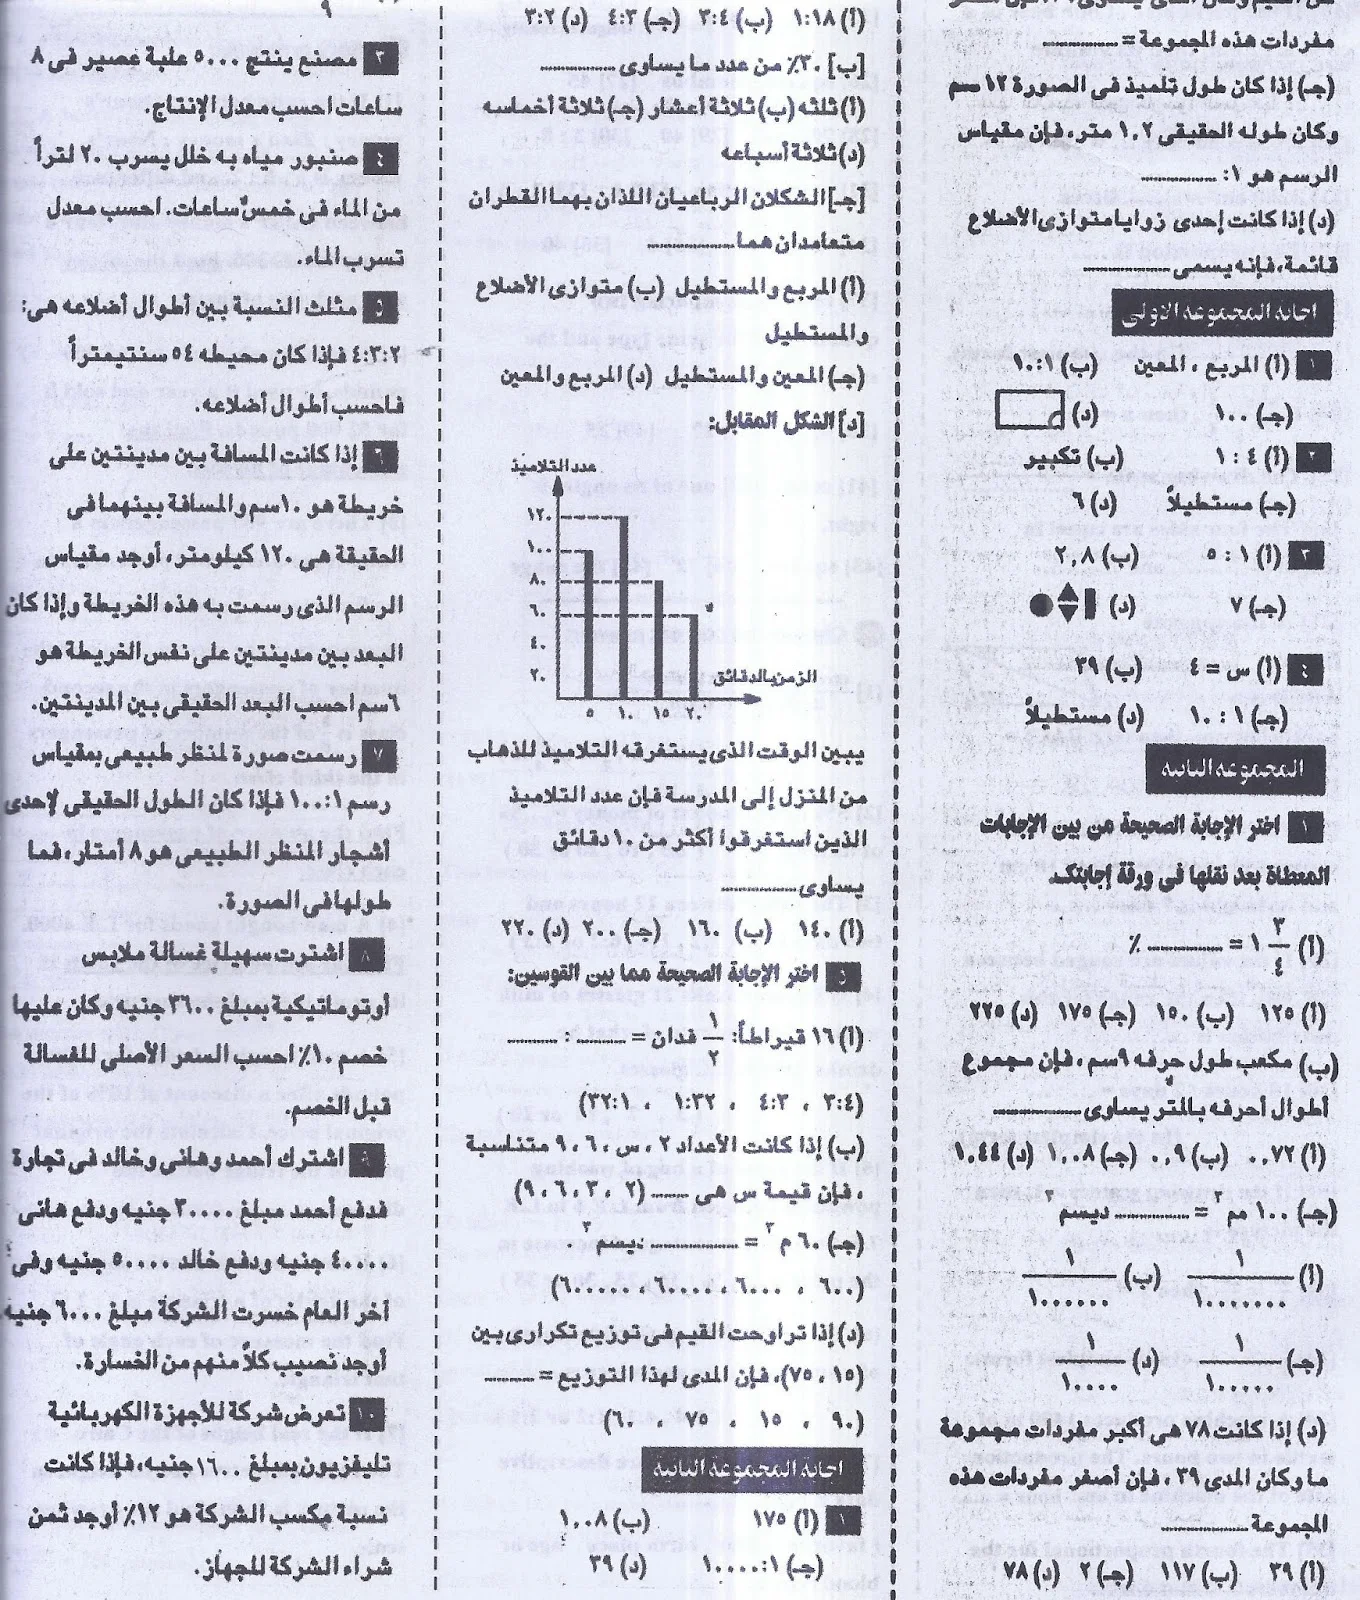 مفردات هذه المجموعة = ..........
(جـ) إذا كان طول تلميذ فى الصورة ١٢ سم
وكان طوله الحقيقى ١,٢ متر، فإن مقياس
الرسم هو ١: ..........
(د) إذا كانت إحدى زوايا متوازى الأضلاع
قائمة، فإنه يسمى ..........
إجابة المجموعة الأولى
١ (أ) المربع ، المعين (ب) ١٠:١
(جـ) ١٠٠ (د)
٢ (أ) ٤ : ١ (ب) تكبير
(جـ) مستطيلاً (د) ٦
٣ (أ) ١ : ٥ (ب) ٢,٨
(جـ) ٧ (د)
٤ (أ) س = ٤ (ب) ٣٩
(جـ) ١ : ١٠ (د) مستطيلاً
المجموعة الثانية
١ اختر الإجابة الصحيحة من بين الإجابات
المعطاة بعد نقلها فى ورقة إجابتك
(أ) ٣/٤ ١ = .......... ٪
(أ) ١٢٥ (ب) ١٥٠ (جـ) ١٧٥ (د) ٢٢٥
(ب) مكعب طول حرفه ٩سم ، فإن مجموع
أطوال أحرفه بالمتر يساوى ..........
(أ) ٠,٧٢ (ب) ٠,٩ (جـ) ١,٠٨ (د) ١,٤٤
(جـ) ١٠٠ مم٣ = .......... ديسم٣
(أ) ١/١٠٠٠٠٠٠٠ (ب) ١/١٠٠٠٠٠٠
(جـ) ١/١٠٠٠٠٠ (د) ١/١٠٠٠٠
(د) إذا كانت ٧٨ هى أكبر مفردات مجموعة
ما وكان المدى ٣٩ ، فإن أصغر مفردات هذه
المجموعة ..........
(أ) ٣٩ (ب) ١١٧ (جـ) ٢ (د) ٧٨
(أ) ١:١٨ (ب) ٣:٤ (جـ) ٤:٣ (د) ٣:٢
[ب] ٣٠٪ من عدد ما يساوى ..........
(أ) ثلثه (ب) ثلاثة أعشار (جـ) ثلاثة أخماسه
(د) ثلاثة أسباعه
[جـ] الشكلان الرباعيان اللذان بهما القطران
متعامدان هما ..........
(أ) المربع والمستطيل (ب) متوازى الأضلاع
والمستطيل
(جـ) المعين والمستطيل (د) المربع والمعين
[د] الشكل المقابل:
عدد التلاميذ
١٢٠
١٠٠
٨٠
٦٠
٤٠
٢٠
الزمن بالدقائق
٥ ١٠ ١٥ ٢٠
يبين الوقت الذى يستغرقه التلاميذ للذهاب
من المنزل إلى المدرسة فإن عدد التلاميذ
الذين استغرقوا أكثر من ١٠ دقائق
يساوى ..........
(أ) ١٤٠ (ب) ١٦٠ (جـ) ٢٠٠ (د) ٢٢٠
٥ اختر الإجابة الصحيحة مما بين القوسين:
(أ) ١٦ قيراطاً: ١/٢ فدان = ..... : .....
(٣:٤ ، ٤:٣ ، ١:٣٢ ، ٣٢:١)
(ب) إذا كانت الأعداد ٢ ، س ، ٦ ، ٩ متناسبة
، فإن قيمة س هى ..... (٢ ، ٣ ، ٦ ، ٩)
(جـ) ٦٠ م٣ = .......... ديسم٣ .
(٦٠٠ ، ٦٠٠٠ ، ٦٠٠٠٠ ، ٦٠٠٠٠٠)
(د) إذا تراوحت القيم فى توزيع تكرارى بين
(١٥ ، ٧٥)، فإن المدى لهذا التوزيع = .....
(٩٠ ، ١٥ ، ٧٥ ، ٦٠)
إجابة المجموعة الثانية
١ (أ) ١٧٥ (ب) ١,٠٨
(جـ) ١٠٠٠٠:١ (د) ٣٩
٩
٣ مصنع ينتج ٥٠٠٠ علبة عصير فى ٨
ساعات احسب معدل الإنتاج.
٤ صنبور مياه به خلل يسرب ٢٠ لتراً
من الماء فى خمس ساعات. احسب معدل
تسرب الماء.
٥ مثلث النسبة بين أطوال أضلاعه هى:
٤:٣:٢ فإذا كان محيطه ٥٤ سنتيمتراً
فاحسب أطوال أضلاعه.
٦ إذا كانت المسافة بين مدينتين على
خريطة هو ١٠سم والمسافة بينهما فى
الحقيقة هى ١٢٠ كيلومتر، أوجد مقياس
الرسم الذى رسمت به هذه الخريطة وإذا كان
البعد بين مدينتين على نفس الخريطة هو
٦سم احسب البعد الحقيقى بين المدينتين.
٧ رسمت صورة لمنظر طبيعى بمقياس
رسم ١٠٠:١ فإذا كان الطول الحقيقى لإحدى
أشجار المنظر الطبيعى هو ٨ أمتار، فما
طولها فى الصورة.
٨ اشترت سهيلة غسالة ملابس
أوتوماتيكية بمبلغ ٣٦٠٠ جنيه وكان عليها
خصم ١٠٪ احسب السعر الأصلى للغسالة
قبل الخصم.
٩ اشترك أحمد وهانى وخالد فى تجارة
فدفع أحمد مبلغ ٣٠٠٠٠ جنيه ودفع هانى
٤٠٠٠٠ جنيه ودفع خالد ٥٠٠٠٠ جنيه وفى
آخر العام خسرت الشركة مبلغ ٦٠٠٠ جنيه.
أوجد نصيب كلاً منهم من الخسارة.
١٠ تعرض شركة للأجهزة الكهربائية
تليفزيون بمبلغ ١٦٠٠ جنيه، فإذا كانت
نسبة مكسب الشركة هو ١٢٪ أوجد ثمن
شراء الشركة للجهاز.